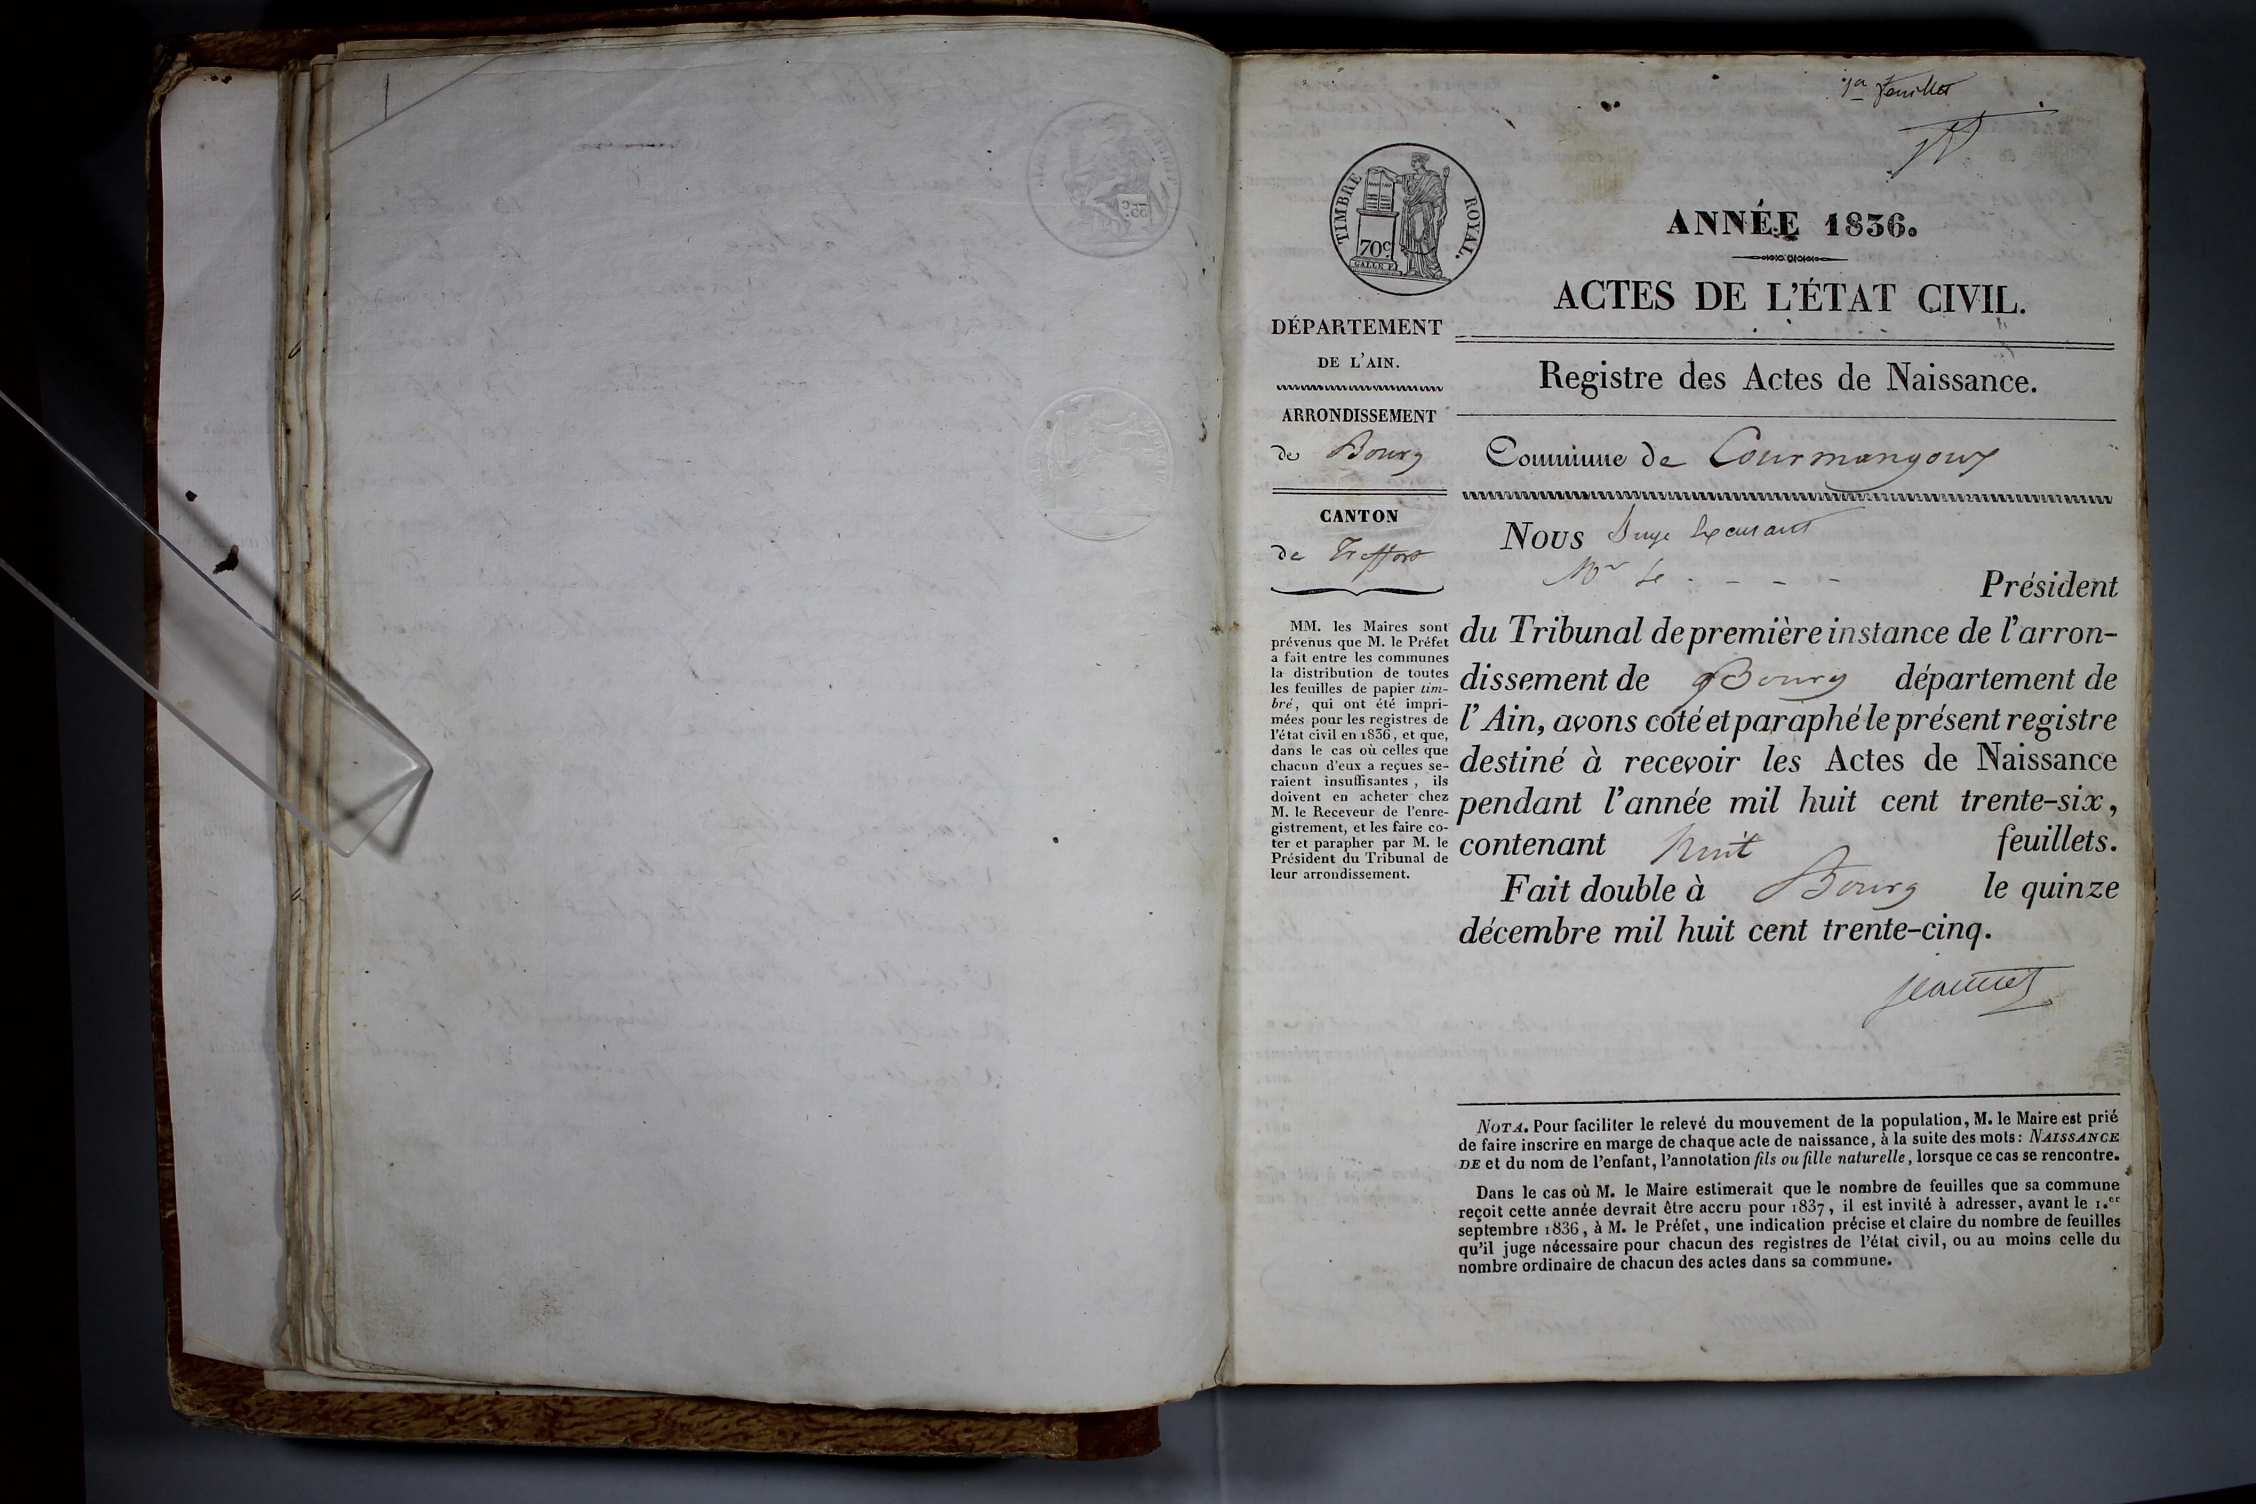 1er feuillet
TIMBRE ROYAL.
70c.
GALLE F.
ANNÉE 1836.
ACTES DE L'ÉTAT CIVIL.
Registre des Actes de Naissance.
Commune de Courmangoux
DÉPARTEMENT
DE L'AIN.
ARRONDISSEMENT
de Bourg
CANTON
de Treffort
MM. les Maires sont
prévenus que M. le Préfet
a fait entre les communes
la distribution de toutes
les feuilles de papier tim-
bré, qui ont été impri-
mées pour les registres de
l'état civil en 1836, et que,
dans le cas où celles que
chacun d'eux a reçues se-
raient insuffisantes, ils
doivent en acheter chez
M. le Receveur de l'enre-
gistrement, et les faire co-
ter et parapher par M. le
Président du Tribunal de
leur arrondissement.
Nous Juge
Mr le - - - Président
du Tribunal de première instance de l'arron-
dissement de Bourg département de
l'Ain, avons coté et paraphé le présent registre
destiné à recevoir les Actes de Naissance
pendant l'année mil huit cent trente-six,
contenant huit feuillets.
Fait double à Bourg le quinze
décembre mil huit cent trente-cinq.
NOTA. Pour faciliter le relevé du mouvement de la population, M. le Maire est prié
de faire inscrire en marge de chaque acte de naissance, à la suite des mots: NAISSANCE
DE et du nom de l'enfant, l'annotation fils ou fille naturelle, lorsque ce cas se rencontre.
Dans le cas où M. le Maire estimerait que le nombre de feuilles que sa commune
reçoit cette année devrait être accru pour 1837, il est invité à adresser, avant le 1.er
septembre 1836, à M. le Préfet, une indication précise et claire du nombre de feuilles
qu'il juge nécessaire pour chacun des registres de l'état civil, ou au moins celle du
nombre ordinaire de chacun des actes dans sa commune.